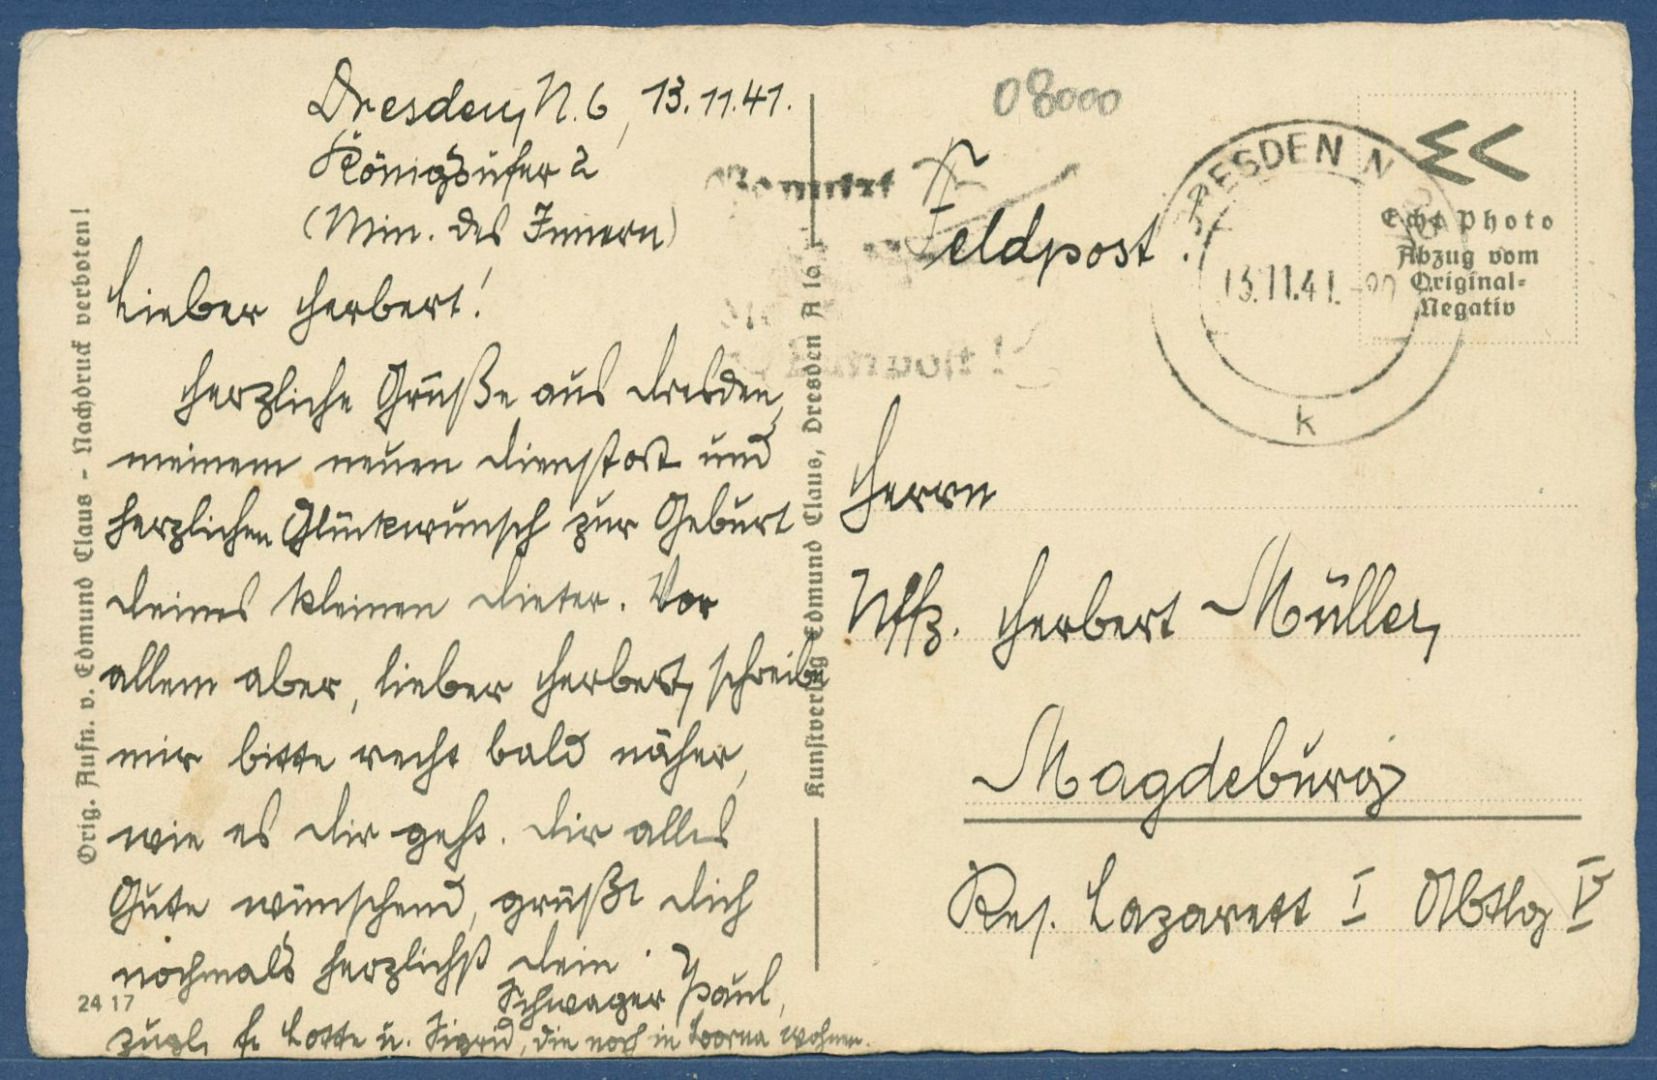 Dresden N. 6, 13.11.41.
Königsufer 2
(Min. des Innern)
Lieber Herbert!
Herzliche Grüße aus Dresden,
meinem neuen Dienstort und
herzlichen Glückwunsch zur Geburt
Deines kleinen Dieter. Vor
allem aber, lieber Herbert, schreibe
mir bitte recht bald näher,
wie es Dir geht. Dir alles
Gute wünschend, grüßt Dich
nochmals herzlichst Dein
Schwager Paul,
zugl. f. Lotte u. Sigrid, die noch in Borna wohnen.
24 17
Orig. Aufn. v. Edmund Claus - Nachdruck verboten!
Kunstverlag Edmund Claus, Dresden A 16
08000
Feldpost!
DRESDEN N
13.11.41.
k
Echt Photo
Abzug vom
Original-
Negativ
Herrn
Uffz. Herbert Müller,
Magdeburg
Res. Lazarett I Abtlg IV